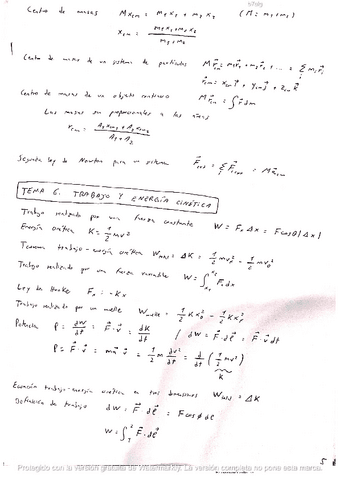 Centro de masas M x_cm = m₁x₁ + m₂x₂ (M = m₁+m₂)
x_cm = (m₁x₁+m₂x₂)/(m₁+m₂)
Centro de masas de un sistema de partículas M r⃗_cm = m₁r⃗₁ + m₂r⃗₂ + ... = Σ mᵢr⃗ᵢ
r⃗_cm = x_cm i⃗ + y_cm j⃗ + z_cm k⃗
Centro de masas de un objeto continuo M r⃗_cm = ∫ r⃗ dm
Las masas son proporcionales a las áreas
r_cm = (A₁x_cm₁ + A₂x_cm₂)/(A₁+A₂)
Segunda ley de Newton para un sistema F⃗_ext = Σ F⃗ᵢ,ext = M a⃗_cm
TEMA 6. TRABAJO Y ENERGÍA CINÉTICA
Trabajo realizado por una fuerza constante W = Fₓ Δx = F cosθ |Δx|
Energía cinética K = 1/2 mv²
Teorema trabajo-energía cinética W_total = ΔK = 1/2 mv_f² - 1/2 mv₀²
Trabajo realizado por una fuerza variable W = ∫ Fₓ dx
Ley de Hooke Fₓ = -Kx
Trabajo realizado por un muelle W_muelle = 1/2 K x₀² - 1/2 K x_f²
Potencia P = dW/dt = F⃗ · v⃗ = dK/dt / dW = F⃗ · dℓ⃗ = F⃗ · v⃗ dt
P = F⃗ · v⃗ = m a⃗ v⃗ = 1/2 m dv²/dt = d/dt (1/2 mv²)
K
Ecuación trabajo-energía cinética en tres dimensiones W_total = ΔK
Definición de trabajo dW = F⃗ · dℓ⃗ = F cosϕ dℓ
W = ∫₁² F⃗ · dℓ⃗
5
Protegido con la versión gratuita de Watermarkly. La versión completa no pone esta marca.